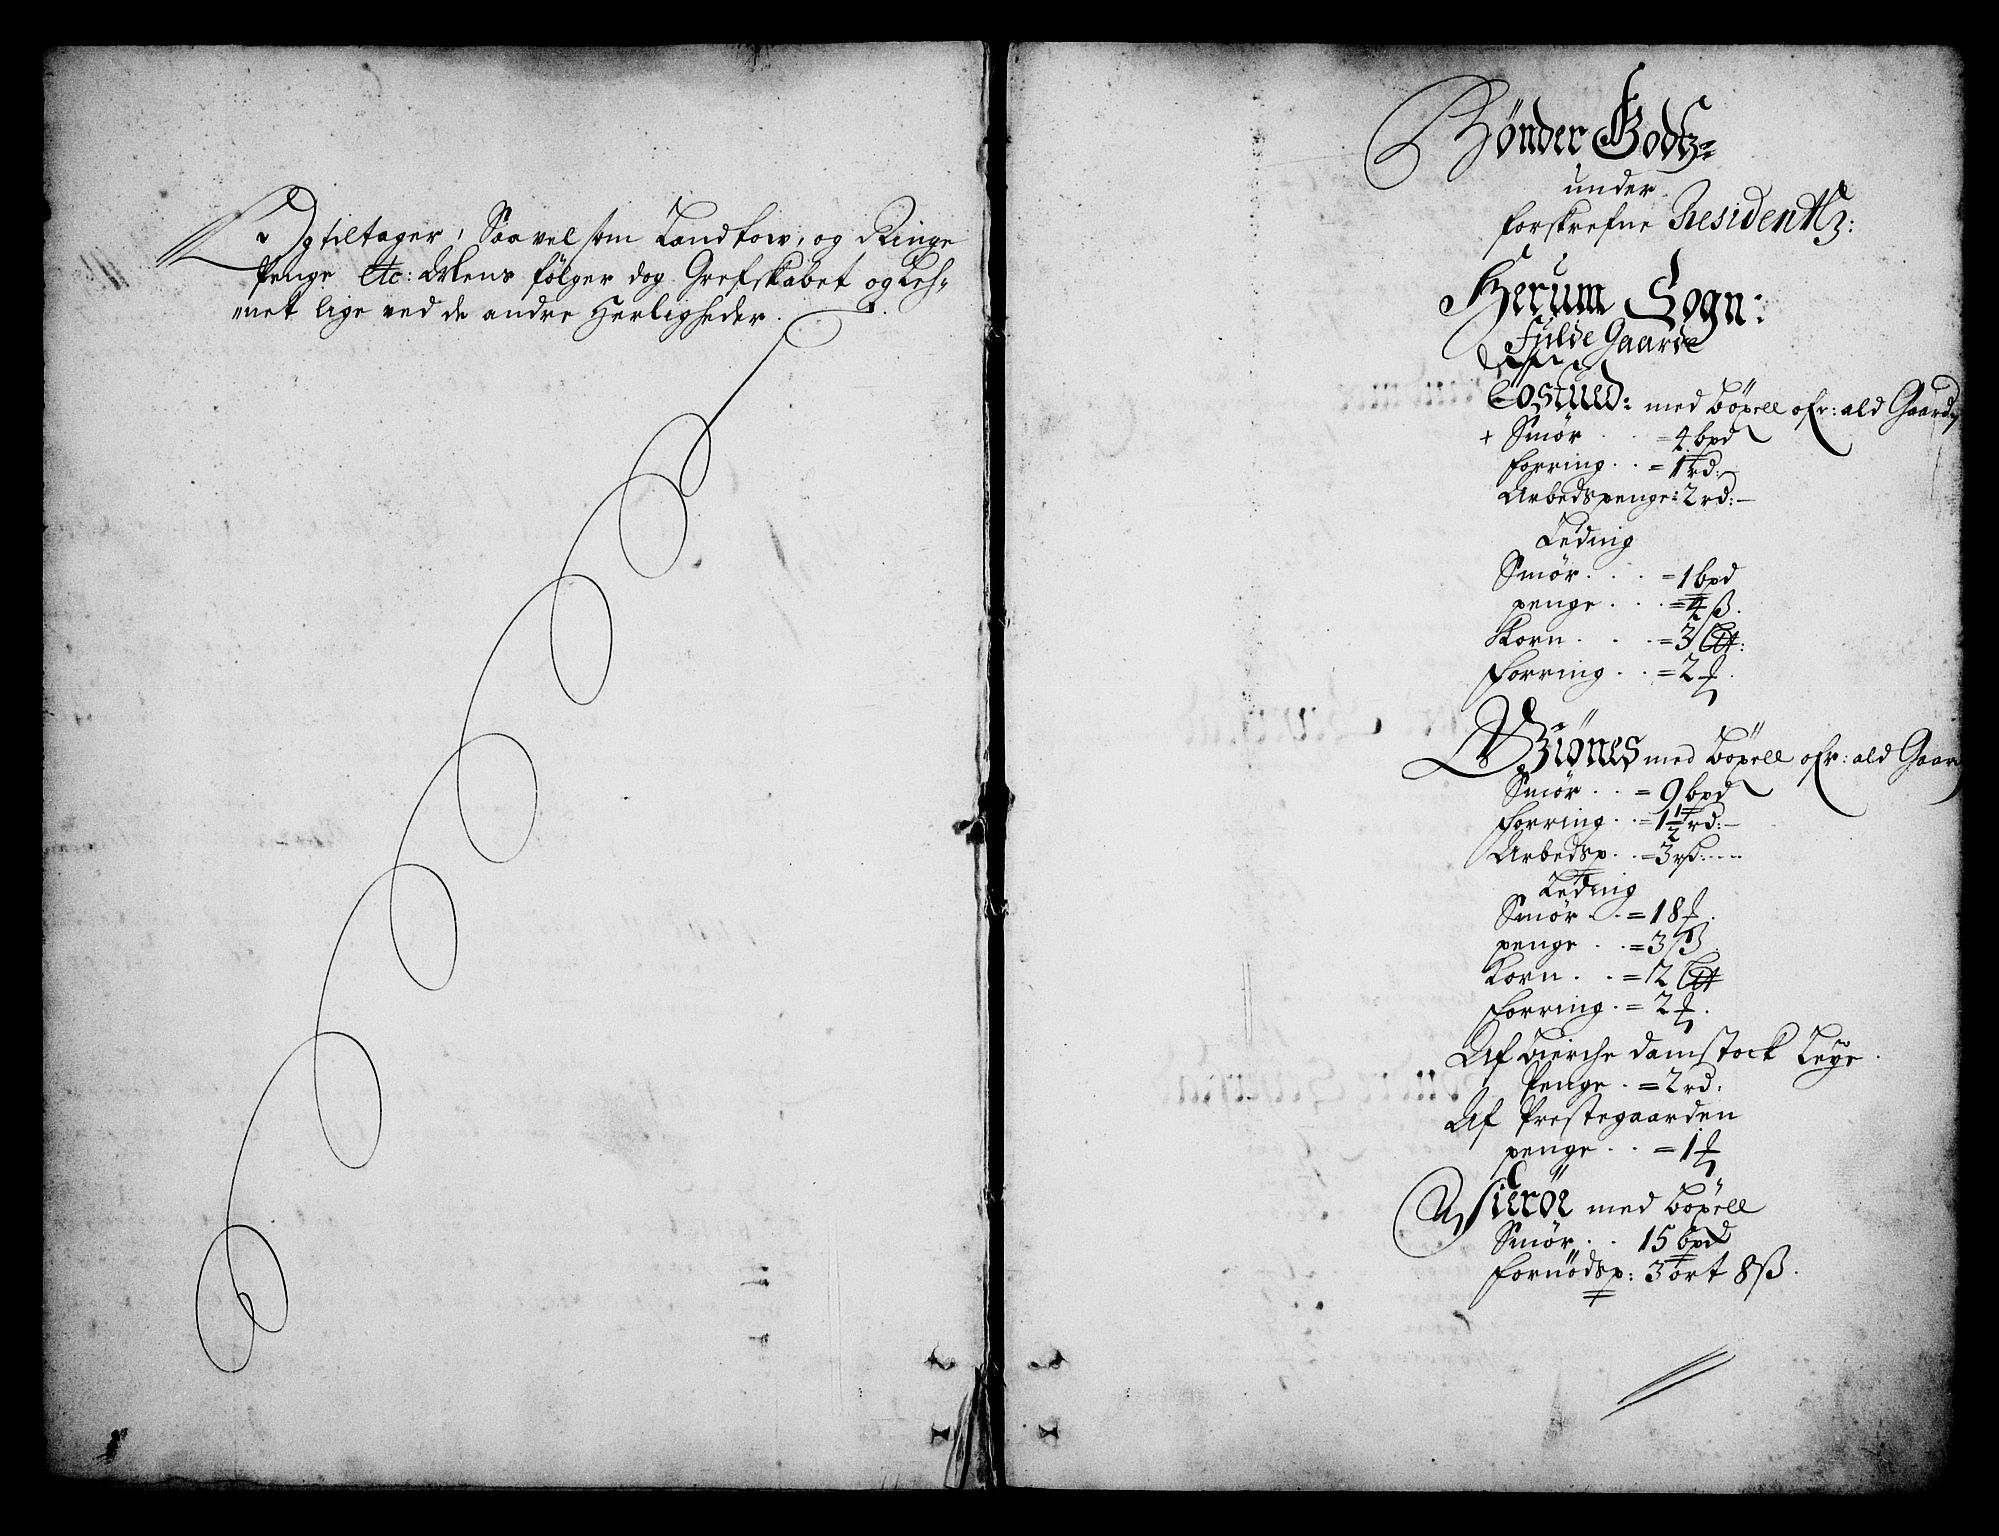 Og tiltager, Saavel som Landkow, og Ringe
Penge etc: Mens følger dog Grefskabet og Leh-
net lige ved de andre Herligheder.
Bönder Godtz
under
forskrefne Residentz:
Herum Sogn:
Fulde Gaarde
med böxell ofr: ald Gaard
+ Smör . . = 4 bpd
forring . . = 1 rd:
Arbedspenge: 2 rd:
Leding
Smör . . . = 1 bpd
penge . . . = 4 ß.
Korn . . . = 3
forring . . = 2
med böxell ofr: ald Gaard
Smör . . = 9 bpd
forring . . = 1½ rd:
Arbedsp. . = 3
Leding
Smör . . = 18
penge . . = 3 ß
Korn . . = 12
forring . = 2
Af Bierche damstock Leye.
Penge . = 2 rd:
Af Prestegaarden
penge . . = 1
med böxell
Smör . . 15 bpd
fornödsp: 3 ort 8 ß.